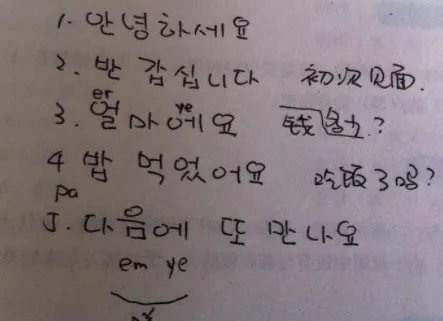 1. 안녕하세요
2. 반 갑십니다 初次见面.
er ye
3. 얼마에요 钱多少?
4 밥 먹었어요 吃饭了吗?
pa
5. 다음에 또 만나요
em ye